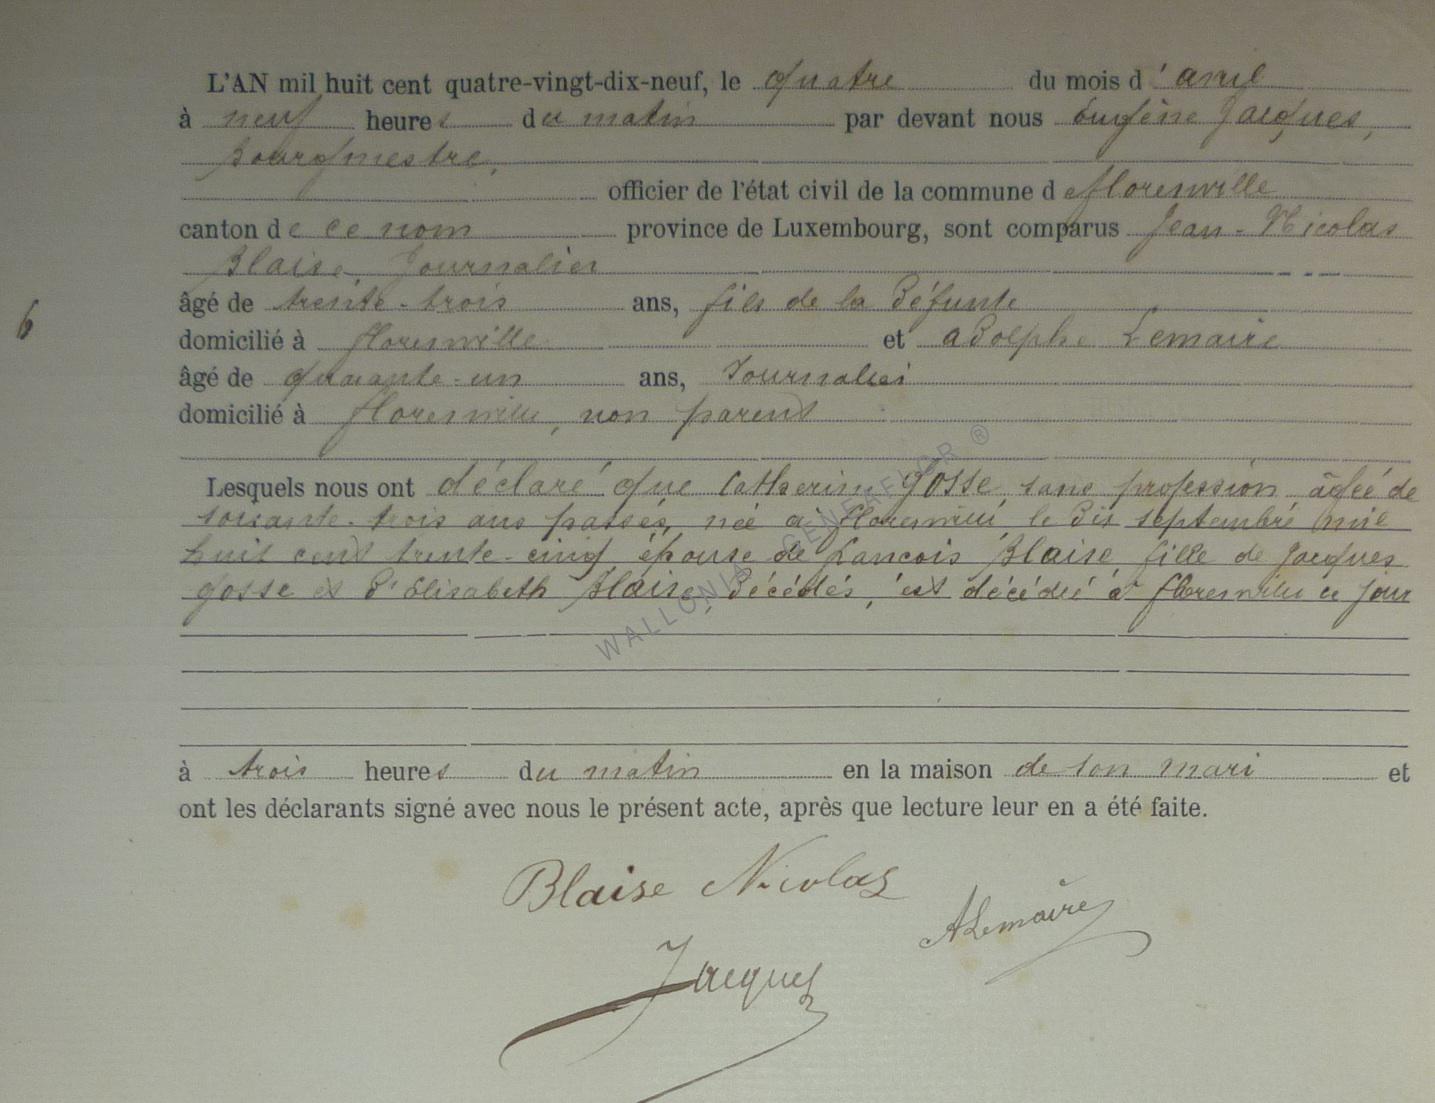 L'AN mil huit cent quatre-vingt-dix-neuf, le quatre du mois d'avril
à neuf heures du matin par devant nous Eugène Jacques,
Bourgmestre,
officier de l'état civil de la commune de florenville
canton de ce nom province de Luxembourg, sont comparus Jean-Nicolas
Blaise, Journalier
âgé de trente-trois ans, fils de la défunte
6
domicilié à florenville et adolphe Lemaire
âgé de quarante-un ans, Journalier
domicilié à florenville, non parent
Lesquels nous ont déclaré que Catherine Gosse, sans profession âgée de
soixante-trois ans passés, née à florenville, le dix septembre mil
huit cent trente-cinq épouse de francois Blaise fille de Jacques
gosse et d'Elisabeth Blaise, décédés, est décédée à florenville ce jour
à trois heures du matin en la maison de son mari et
ont les déclarants signé avec nous le présent acte, après que lecture leur en a été faite.
Blaise Nicolas
ALemaire
Jacques
WALLONIA GENEAFLOR ®